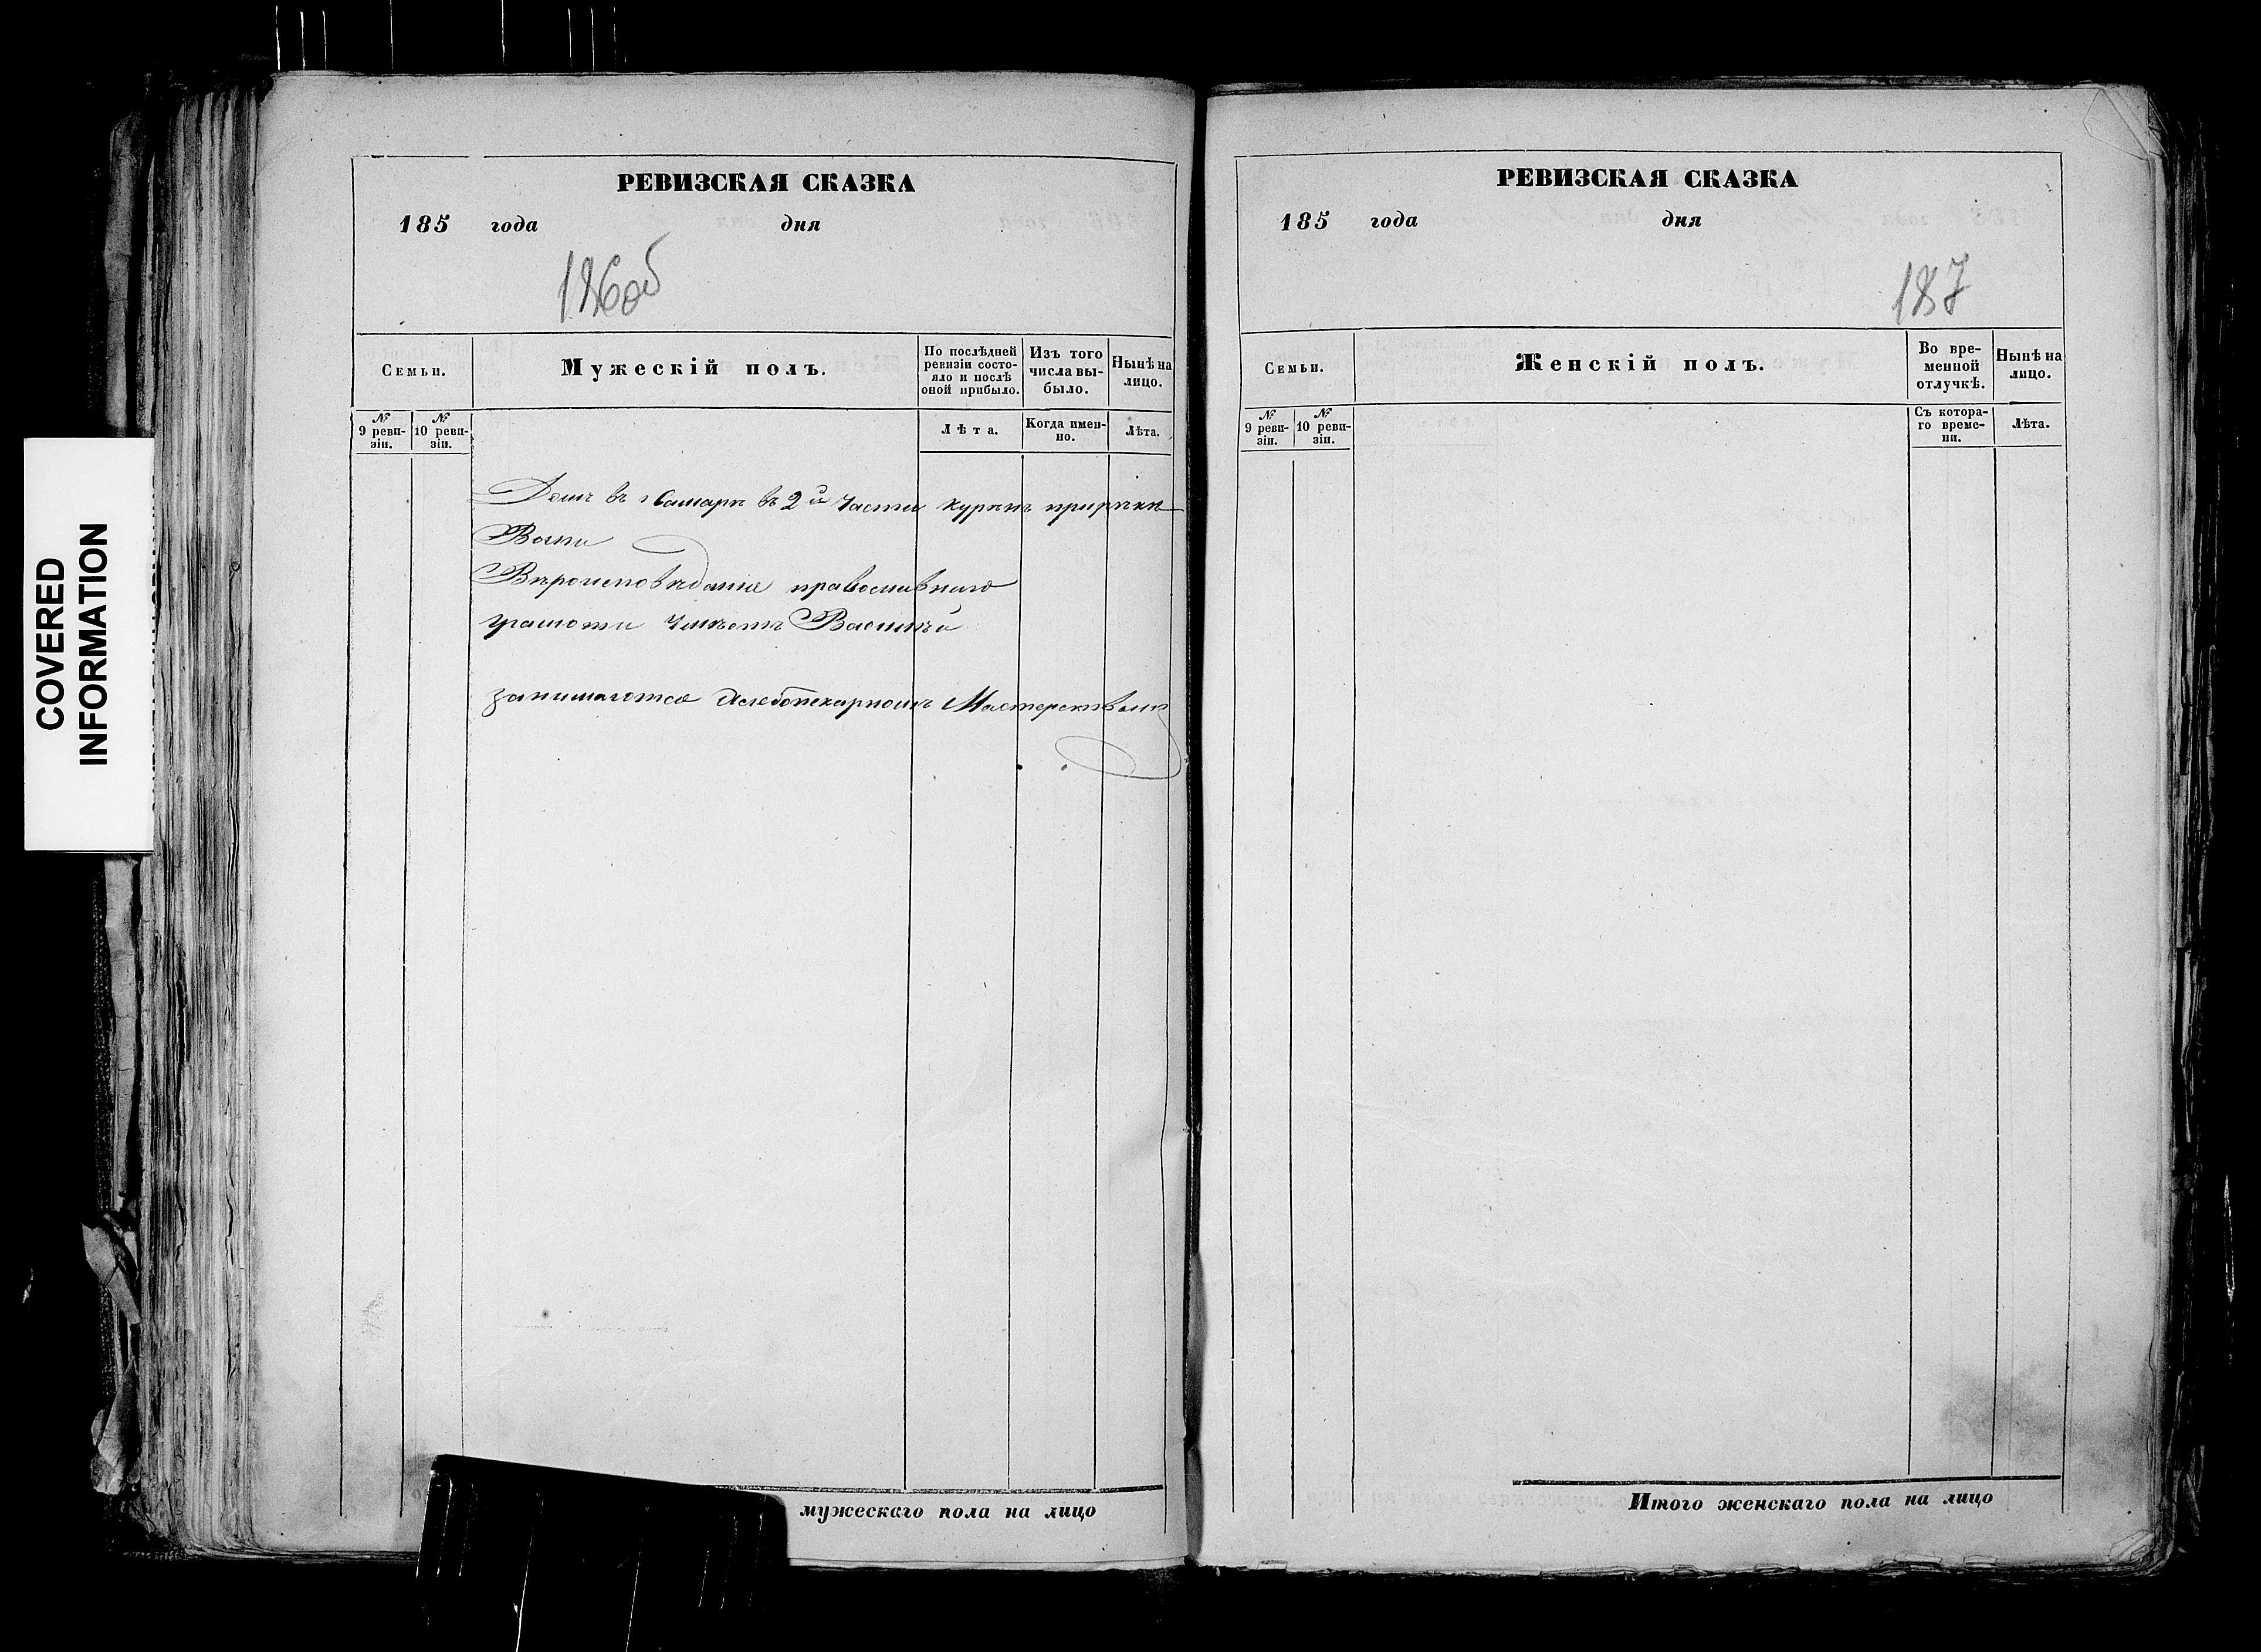 COVERED
INFORMATION
РЕВИЗСКАЯ СКАЗКА
185 года дня
186об
Семьи.
Мужескій полъ.
По послѣдней
ревизіи состо-
яло и послѣ
оной прибыло.
Изъ того
числа вы-
было.
Нынѣ на
лицо.
№
9 реви-
зіи.
№
10 реви-
зіи.
Лѣта.
Когда имен-
но.
Лѣта.
Домъ въ г Самаре въ 2й части прирѣкѣ
Волги
Вѣроисповѣданія православнаго
грамоти умѣетъ Василій
занимаются Хлебопекарномъ Мастерствомъ
мужескаго пола на лицо
РЕВИЗСКАЯ СКАЗКА
185 года дня
187
Семьи.
Женскій полъ.
Во вре-
менной
отлучкѣ.
Нынѣ на
лицо.
№
9 реви-
зіи.
№
10 реви-
зіи.
Съ котора-
го време-
ни.
Лѣта.
Итого женскаго пола на лицо